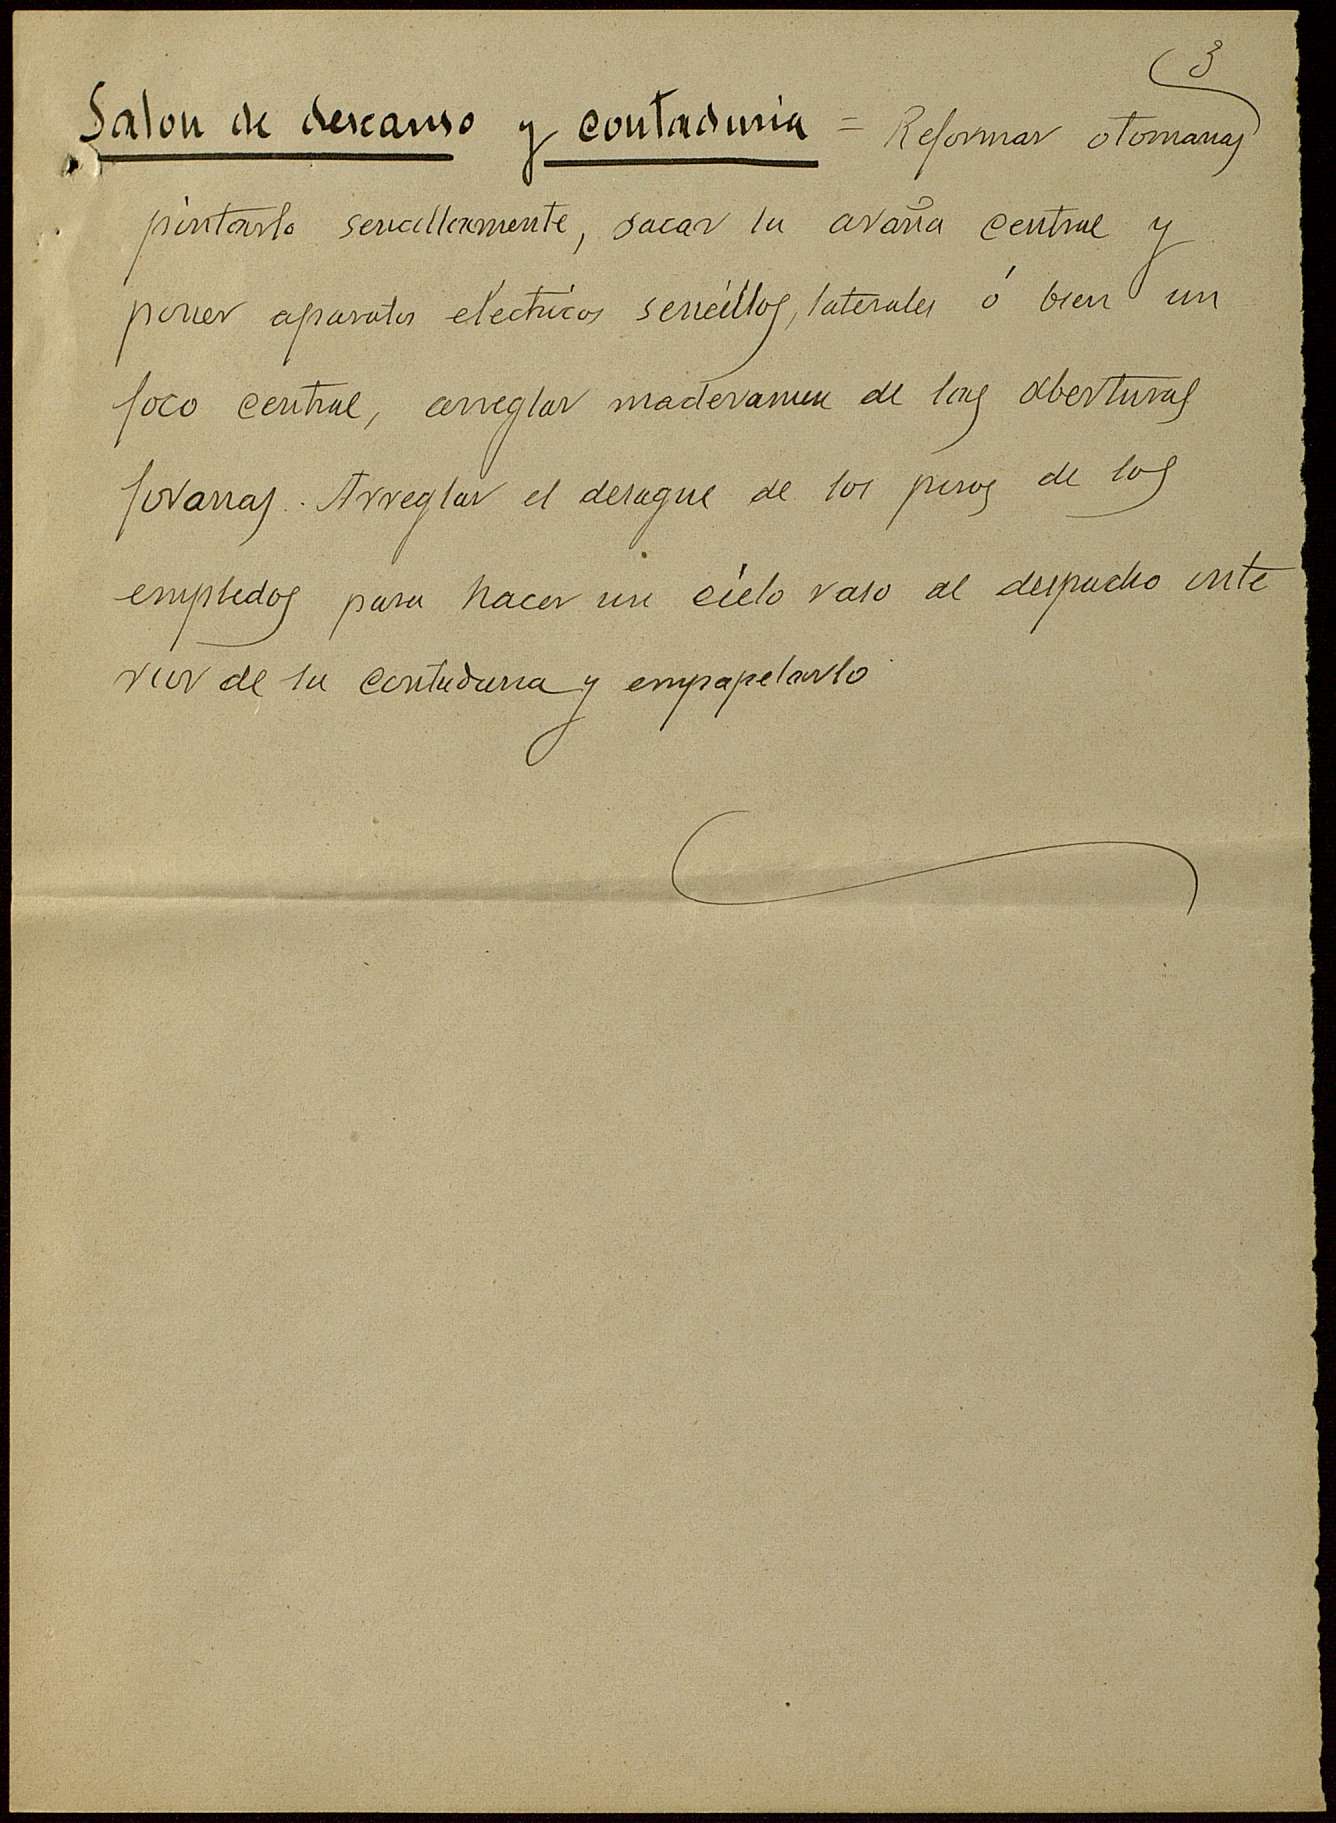 3
Salon de descanso y contaduria = Reformar otomanas
pintarlo sencillamente, sacar la araña central y
poner aparatos eléctricos sencillos, laterales ó bien un
foco central, arreglar maderamen de las aberturas
foranas. Arreglar el desague de los pisos de los
empledos para hacer un cielo raso al despacho inte
rior de la contaduria y empapelarlo